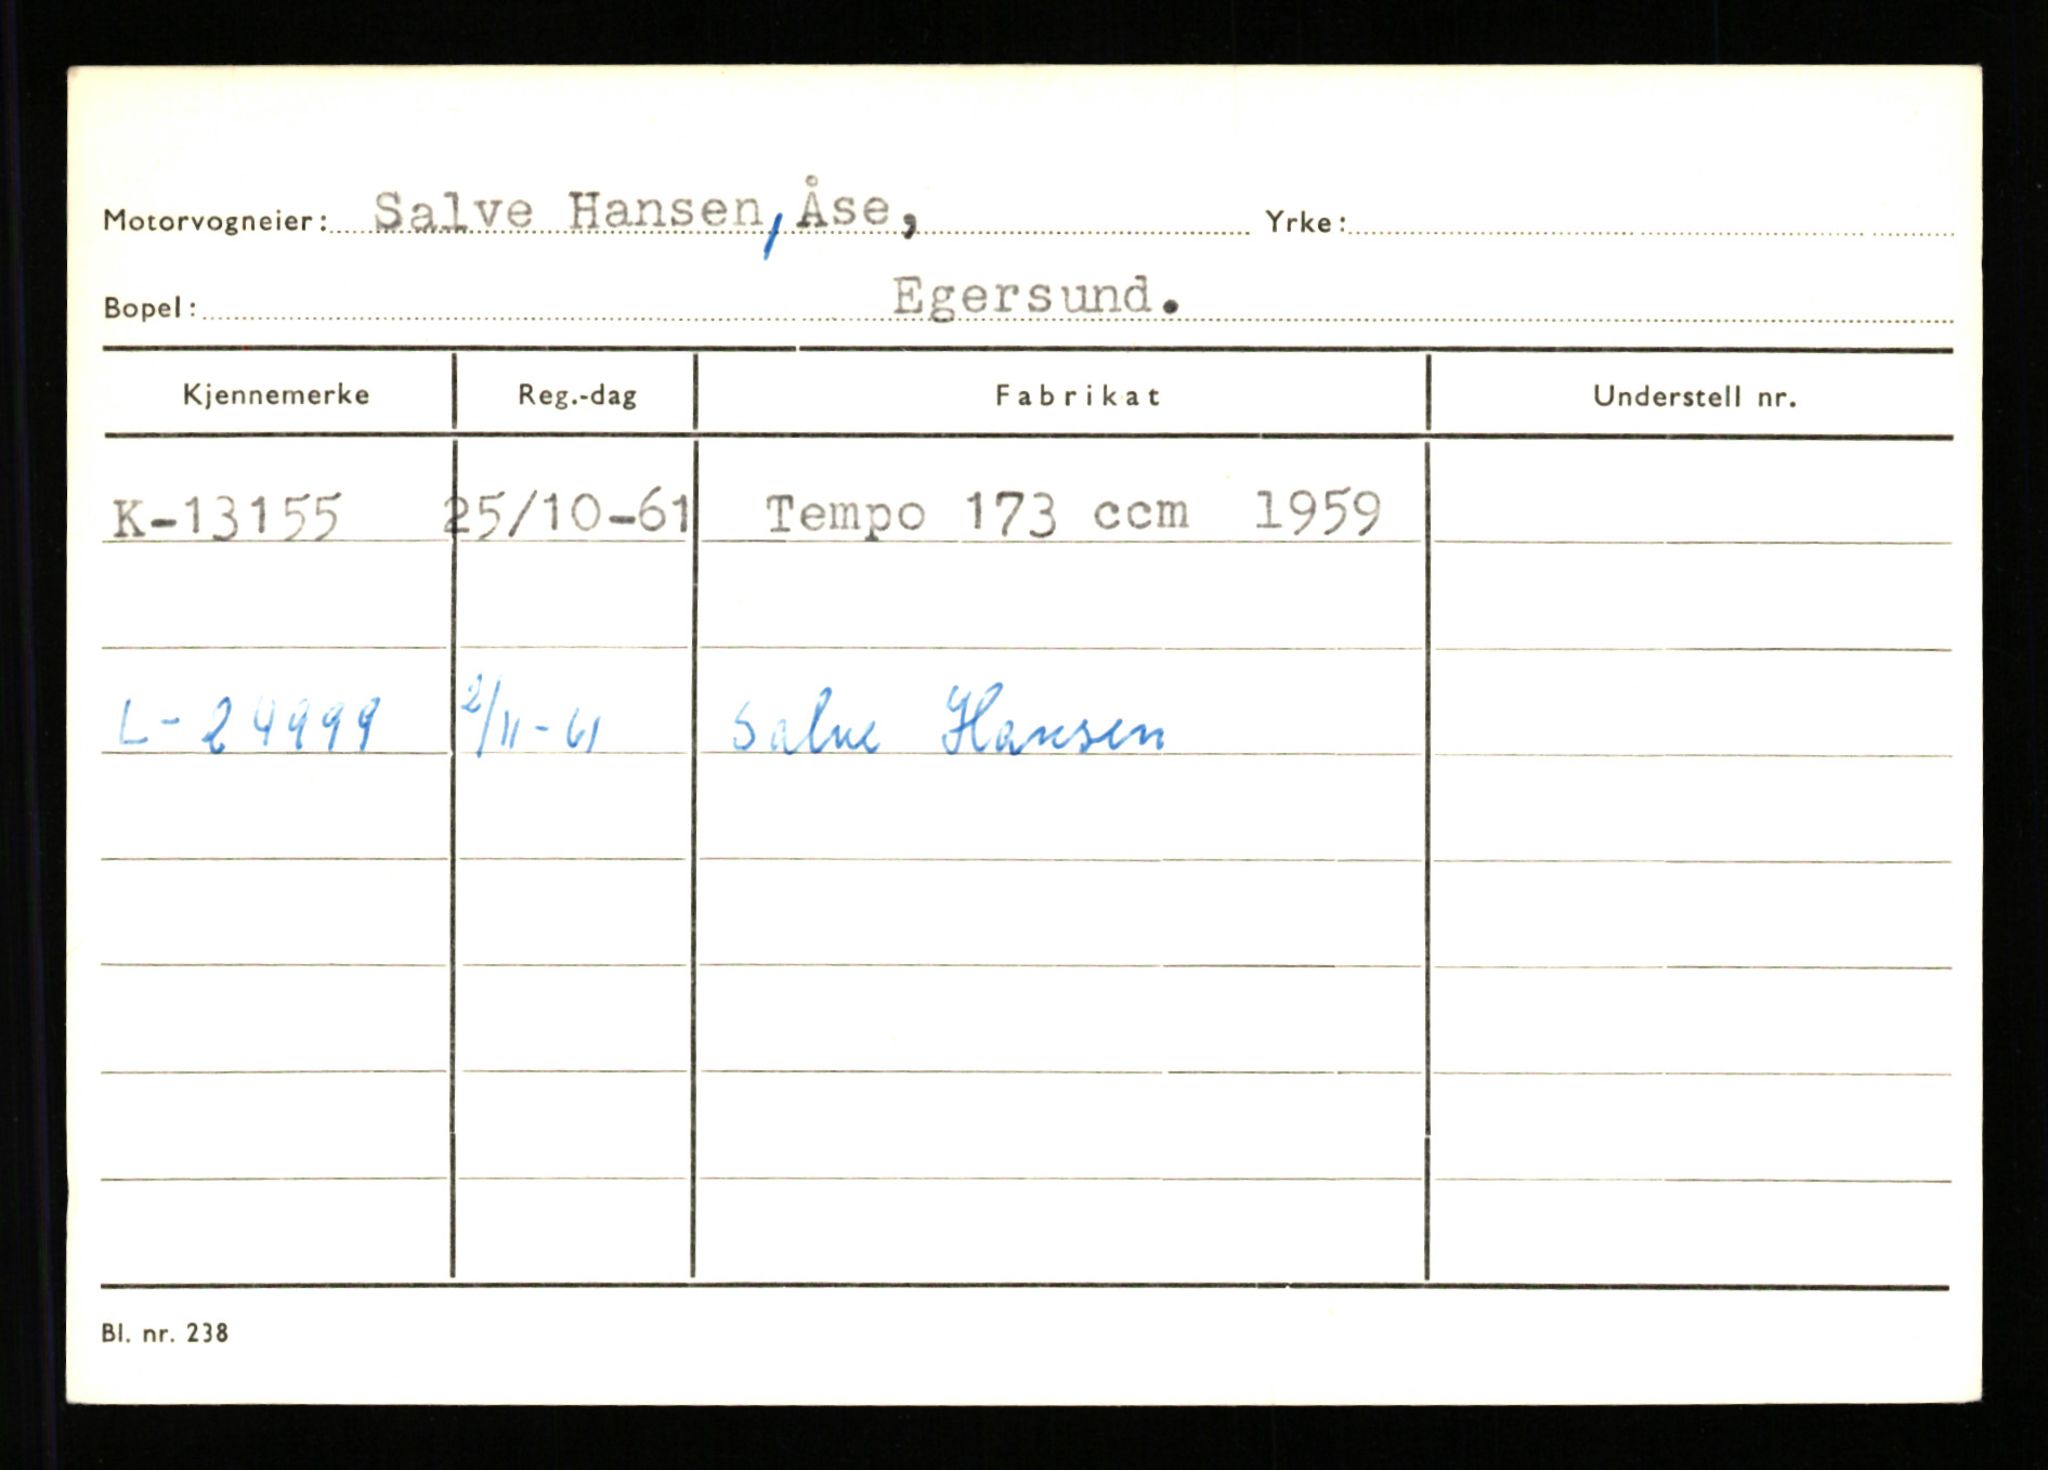 Motorvogneier: Salve Hansen, Åse, Yrke:
Bopel: Egersund.
Kjennemerke Reg.-dag Fabrikat Understell nr.
K-13155 25/10-61 Tempo 173 ccm 1959
L-24999 2/11-61 Salve Hansen
Bl. nr. 238